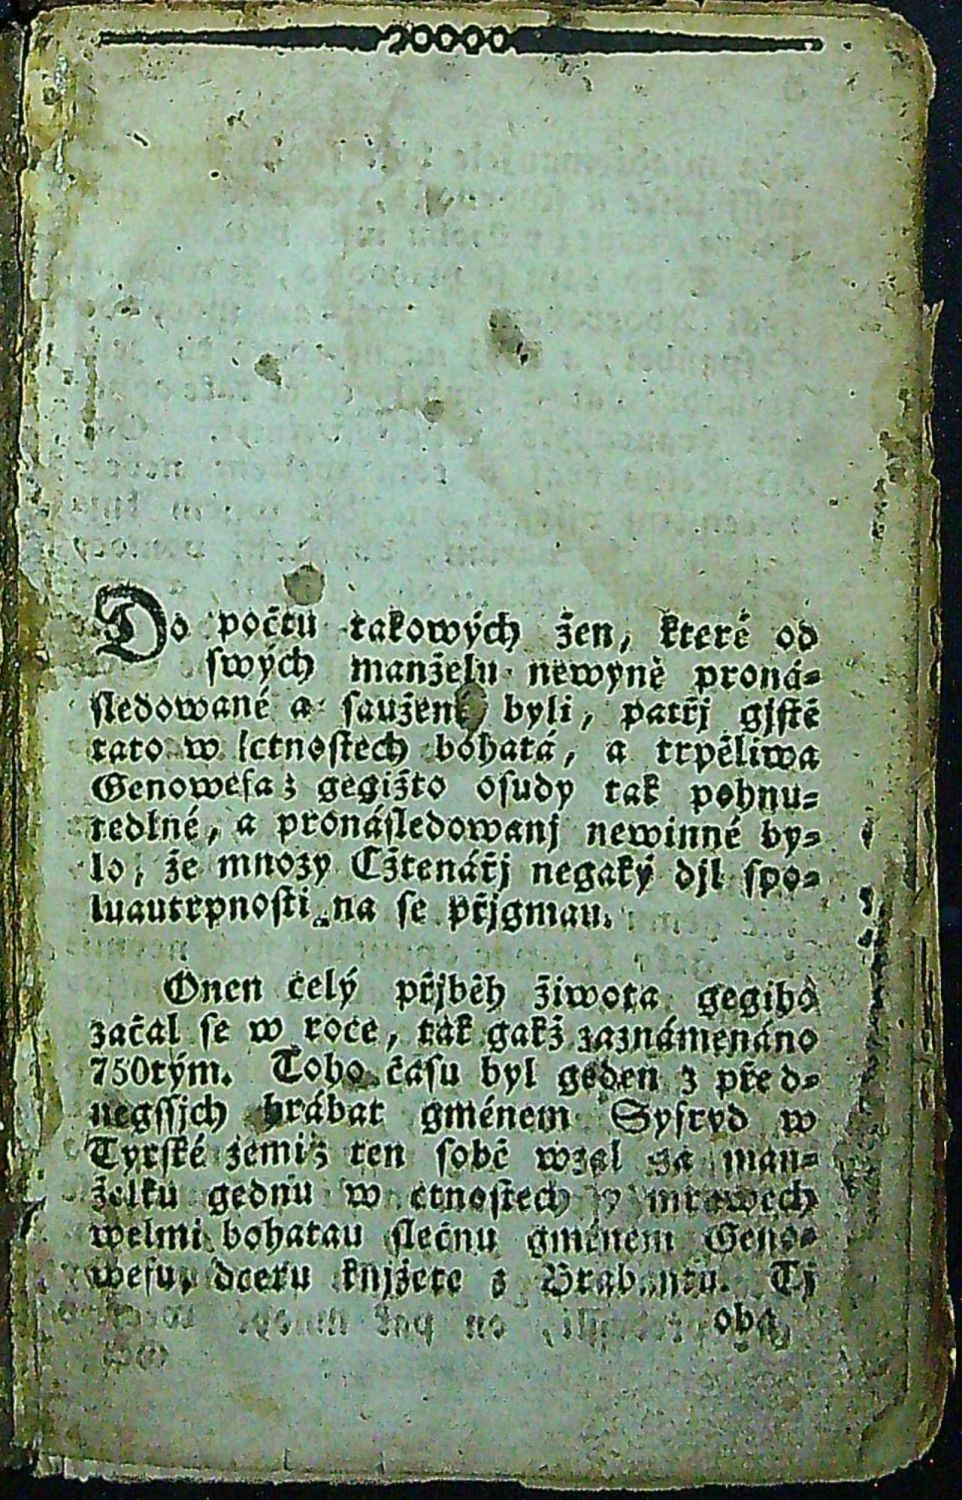 Do počtu takowých žen, které od
swých manželu newyně proná-
sledované a saužené byli, patřj gjstě
tato w ctnostech bohatá, a trpěliwa
Genowefa; gegižto osudy tak pohnu-
tedlné, a pronásledowanj newinné by-
lo, že mnozy Cžtenářj negaký djl spo-
luautrpnosti na se přjgmau.
Onen celý přjběh žiwota gegiho
začal se w roce, tak gakž zaznámenáno
750tým. Toho času byl geden z před-
negssjch hrábat gménem Syfryd w
Tyrské zemi; ten sobě wzal za man-
želku gednu w ctnostech y mrawech
welmi bohatau slečnu gménem Geno-
wefu, dceru knjžete z Brabantu. Tj
oba